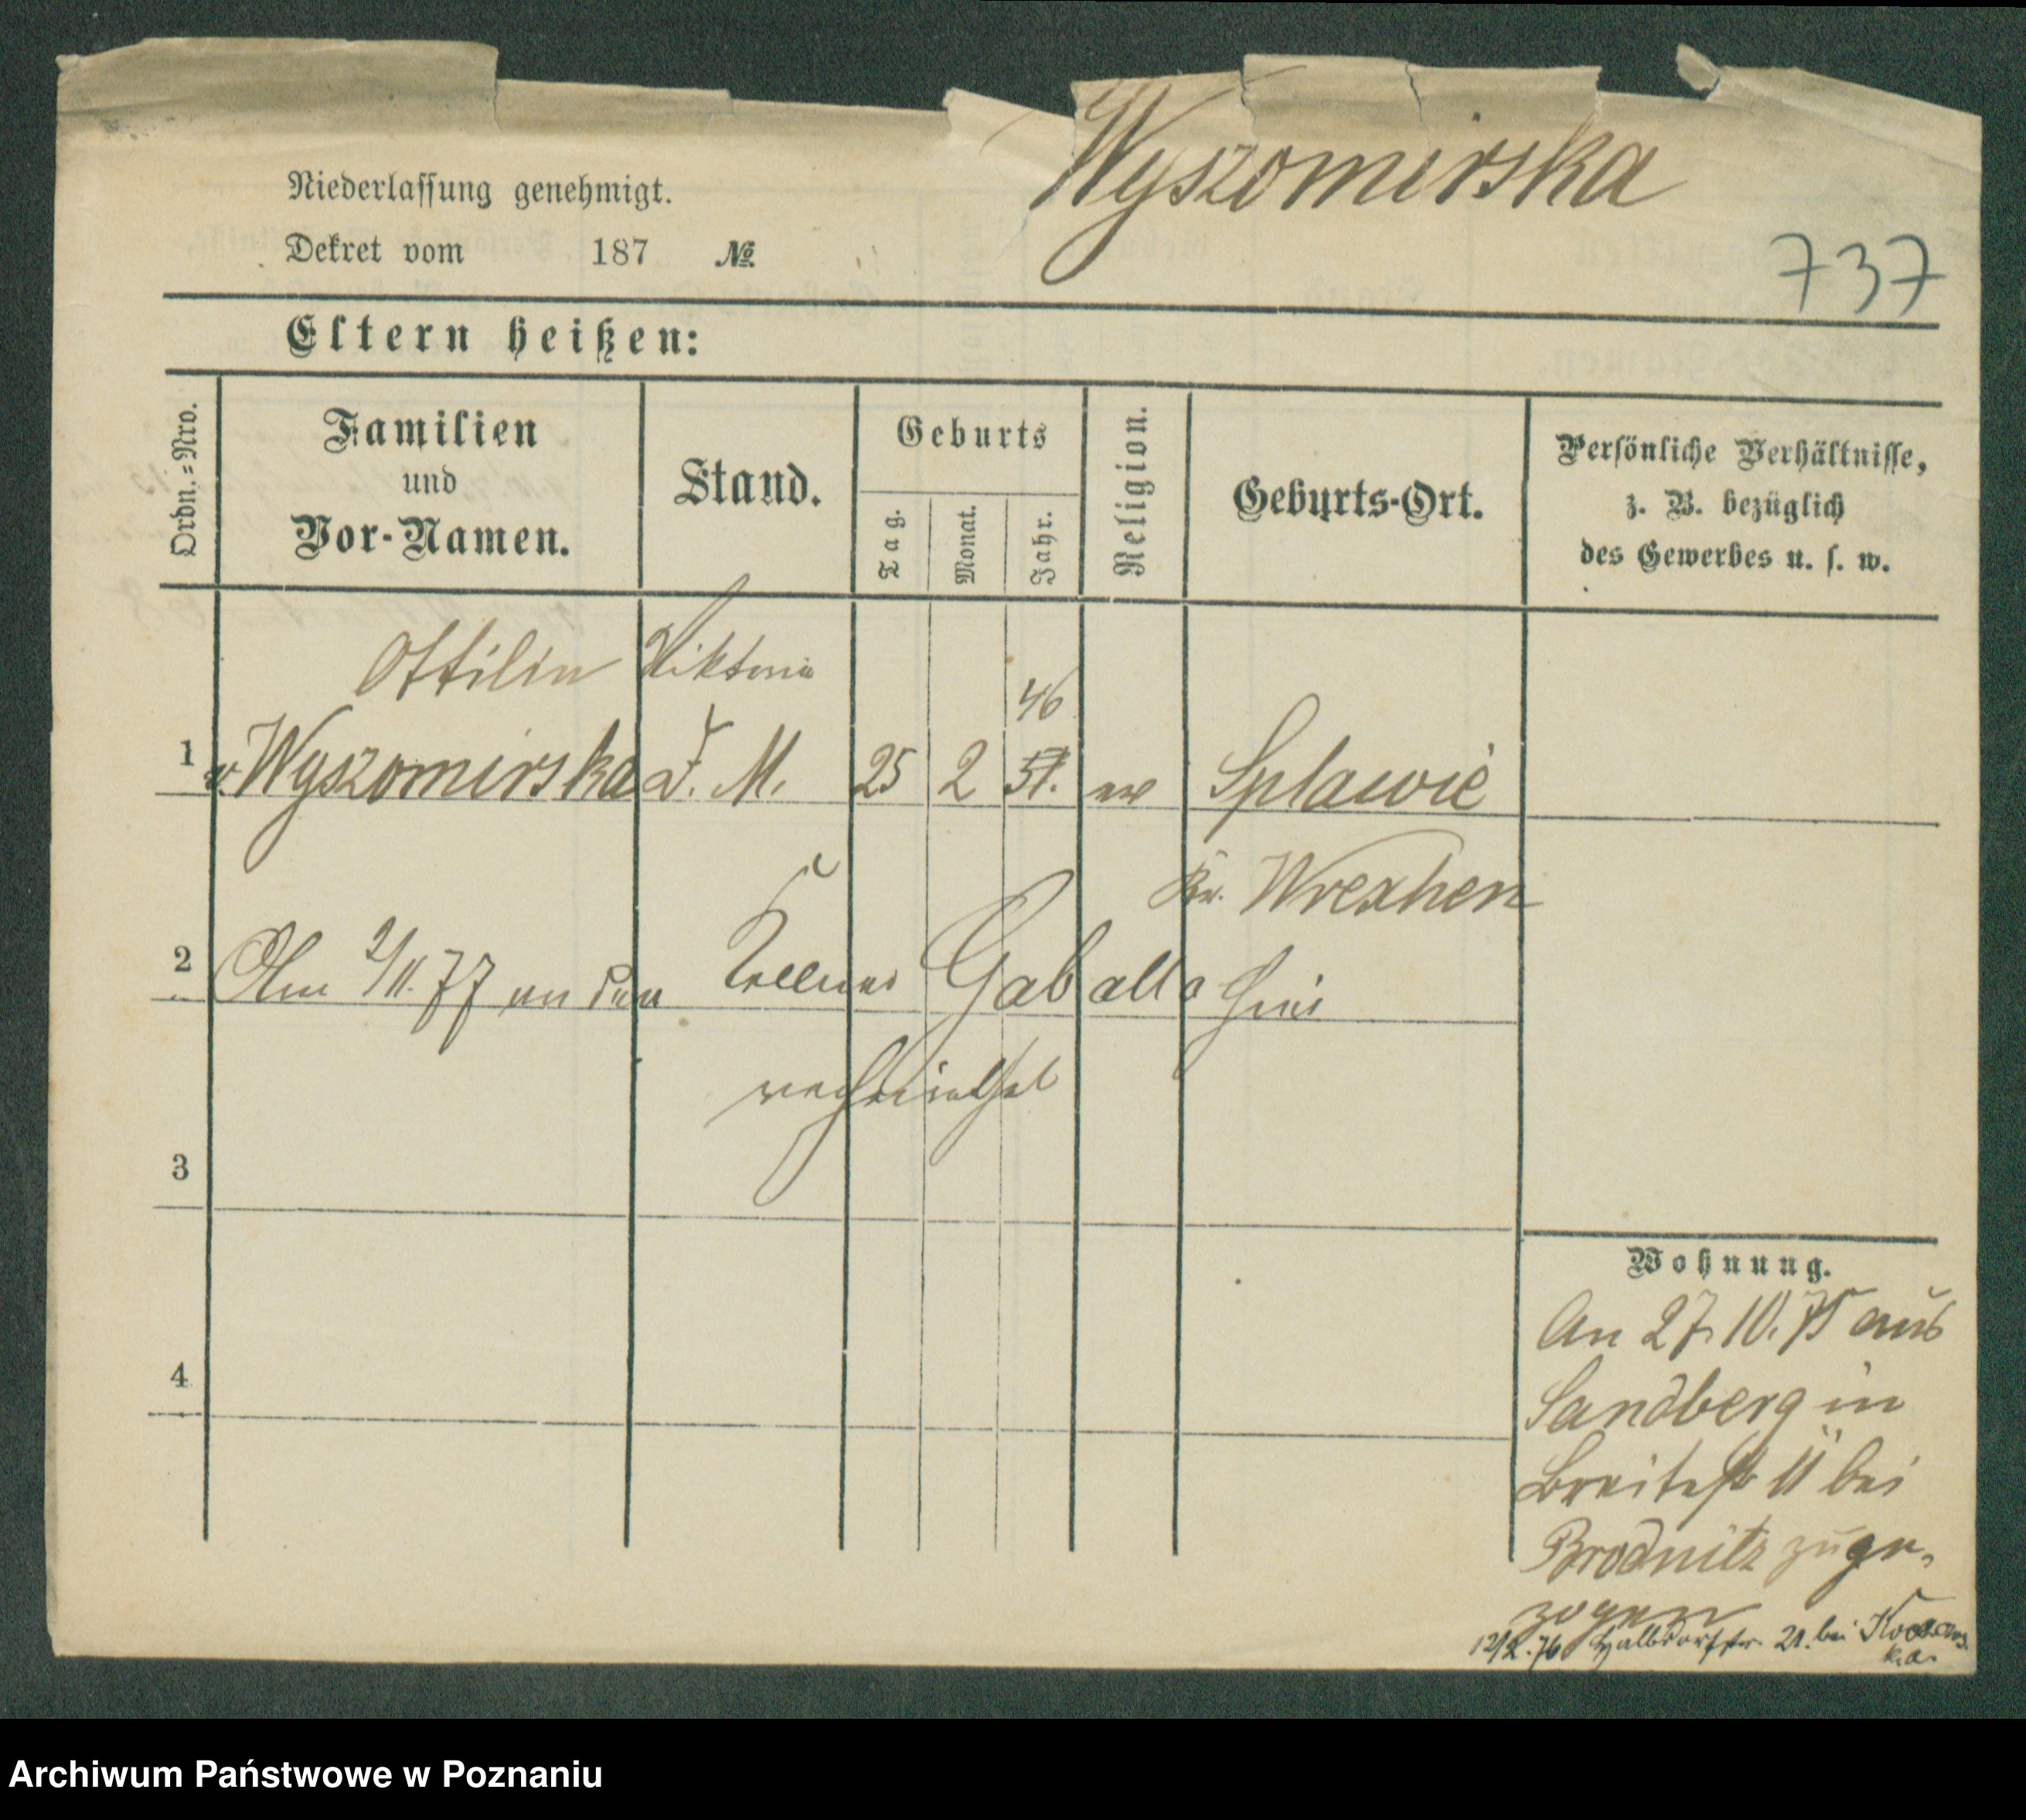 Wyszomirska
Niederlassung genehmigt.
Dekret vom 187 №
737
Eltern heißen:
Ordn.=Nro.
Familien
und
Vor-Namen.
Stand.
Geburts
Tag.
Monat.
Jahr.
Religion.
Geburts-Ort.
Persönliche Verhältnisse,
z. B. bezüglich
des Gewerbes u. s. w.
Ottilie Viktoria
46
1 v. Wyszomirska D. M. 25 2 51. Splawie
Kr. Wreschen
2 Am 2/11.77 an den Kellner Gaballa hier
verheirathet
3
4
Wohnung.
An 27. 10. 75 aus
Sandberg in
Breitestr 11 bei
Brodnitz zuge-
zogen
12/2.76 Halbdorfstr. 21. bei
ka.
Archiwum Państwowe w Poznaniu